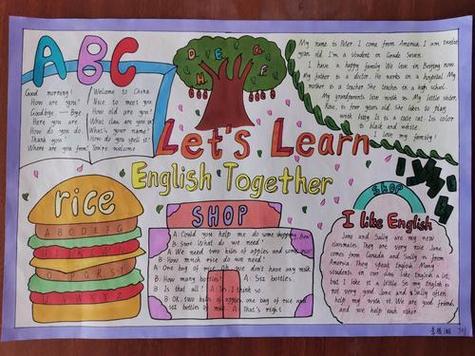 ABC
Good morning!
How are you?
Goodbye — Bye
Here you are.
How do you do.
Thank you!
Where are you from?
Welcome to China
Nice to meet you
How old are you?
What can you
What's your name?
How do you spell
You're welcome
D E F G
H
My name is Peter. I come from America. I am twelve
year old. I'm a student in Grade Seven.
I have a happy family. We live in Beijing now.
My father is a doctor. He works in a hospital. My
mother is a teacher. She teaches in a high school.
My grandparents live with us. My little sister,
Rose, is four years old. She likes to play
with Kitty. It is a cute cat. Its color
is black and white.
I love my family!
Let's Learn
English Together
rice
SHOP
A: Could you help me do some shopping, Ben
B: Sure. What do we need?
A: We need two kilos of apples and some rice
B: How much rice do we need?
A: One bag of rice. Oh, we don't have any milk
B: How many bottles?
A: Six bottles.
B: Is that all?
A: Yes, I think so.
B: OK, two kilos of apples, one bag of rice and
six bottles of milk.
A: That's right!
SHOP
I like English
Jane and Sally are my new
classmates. They are very nice. Jane
comes from Canada and Sally is from
America. They speak English. Many
students in our class like English a lot
but I like it a little. So my English is
not very good. Jane and Sally often
help me with it. We are good friends,
and we help each other.